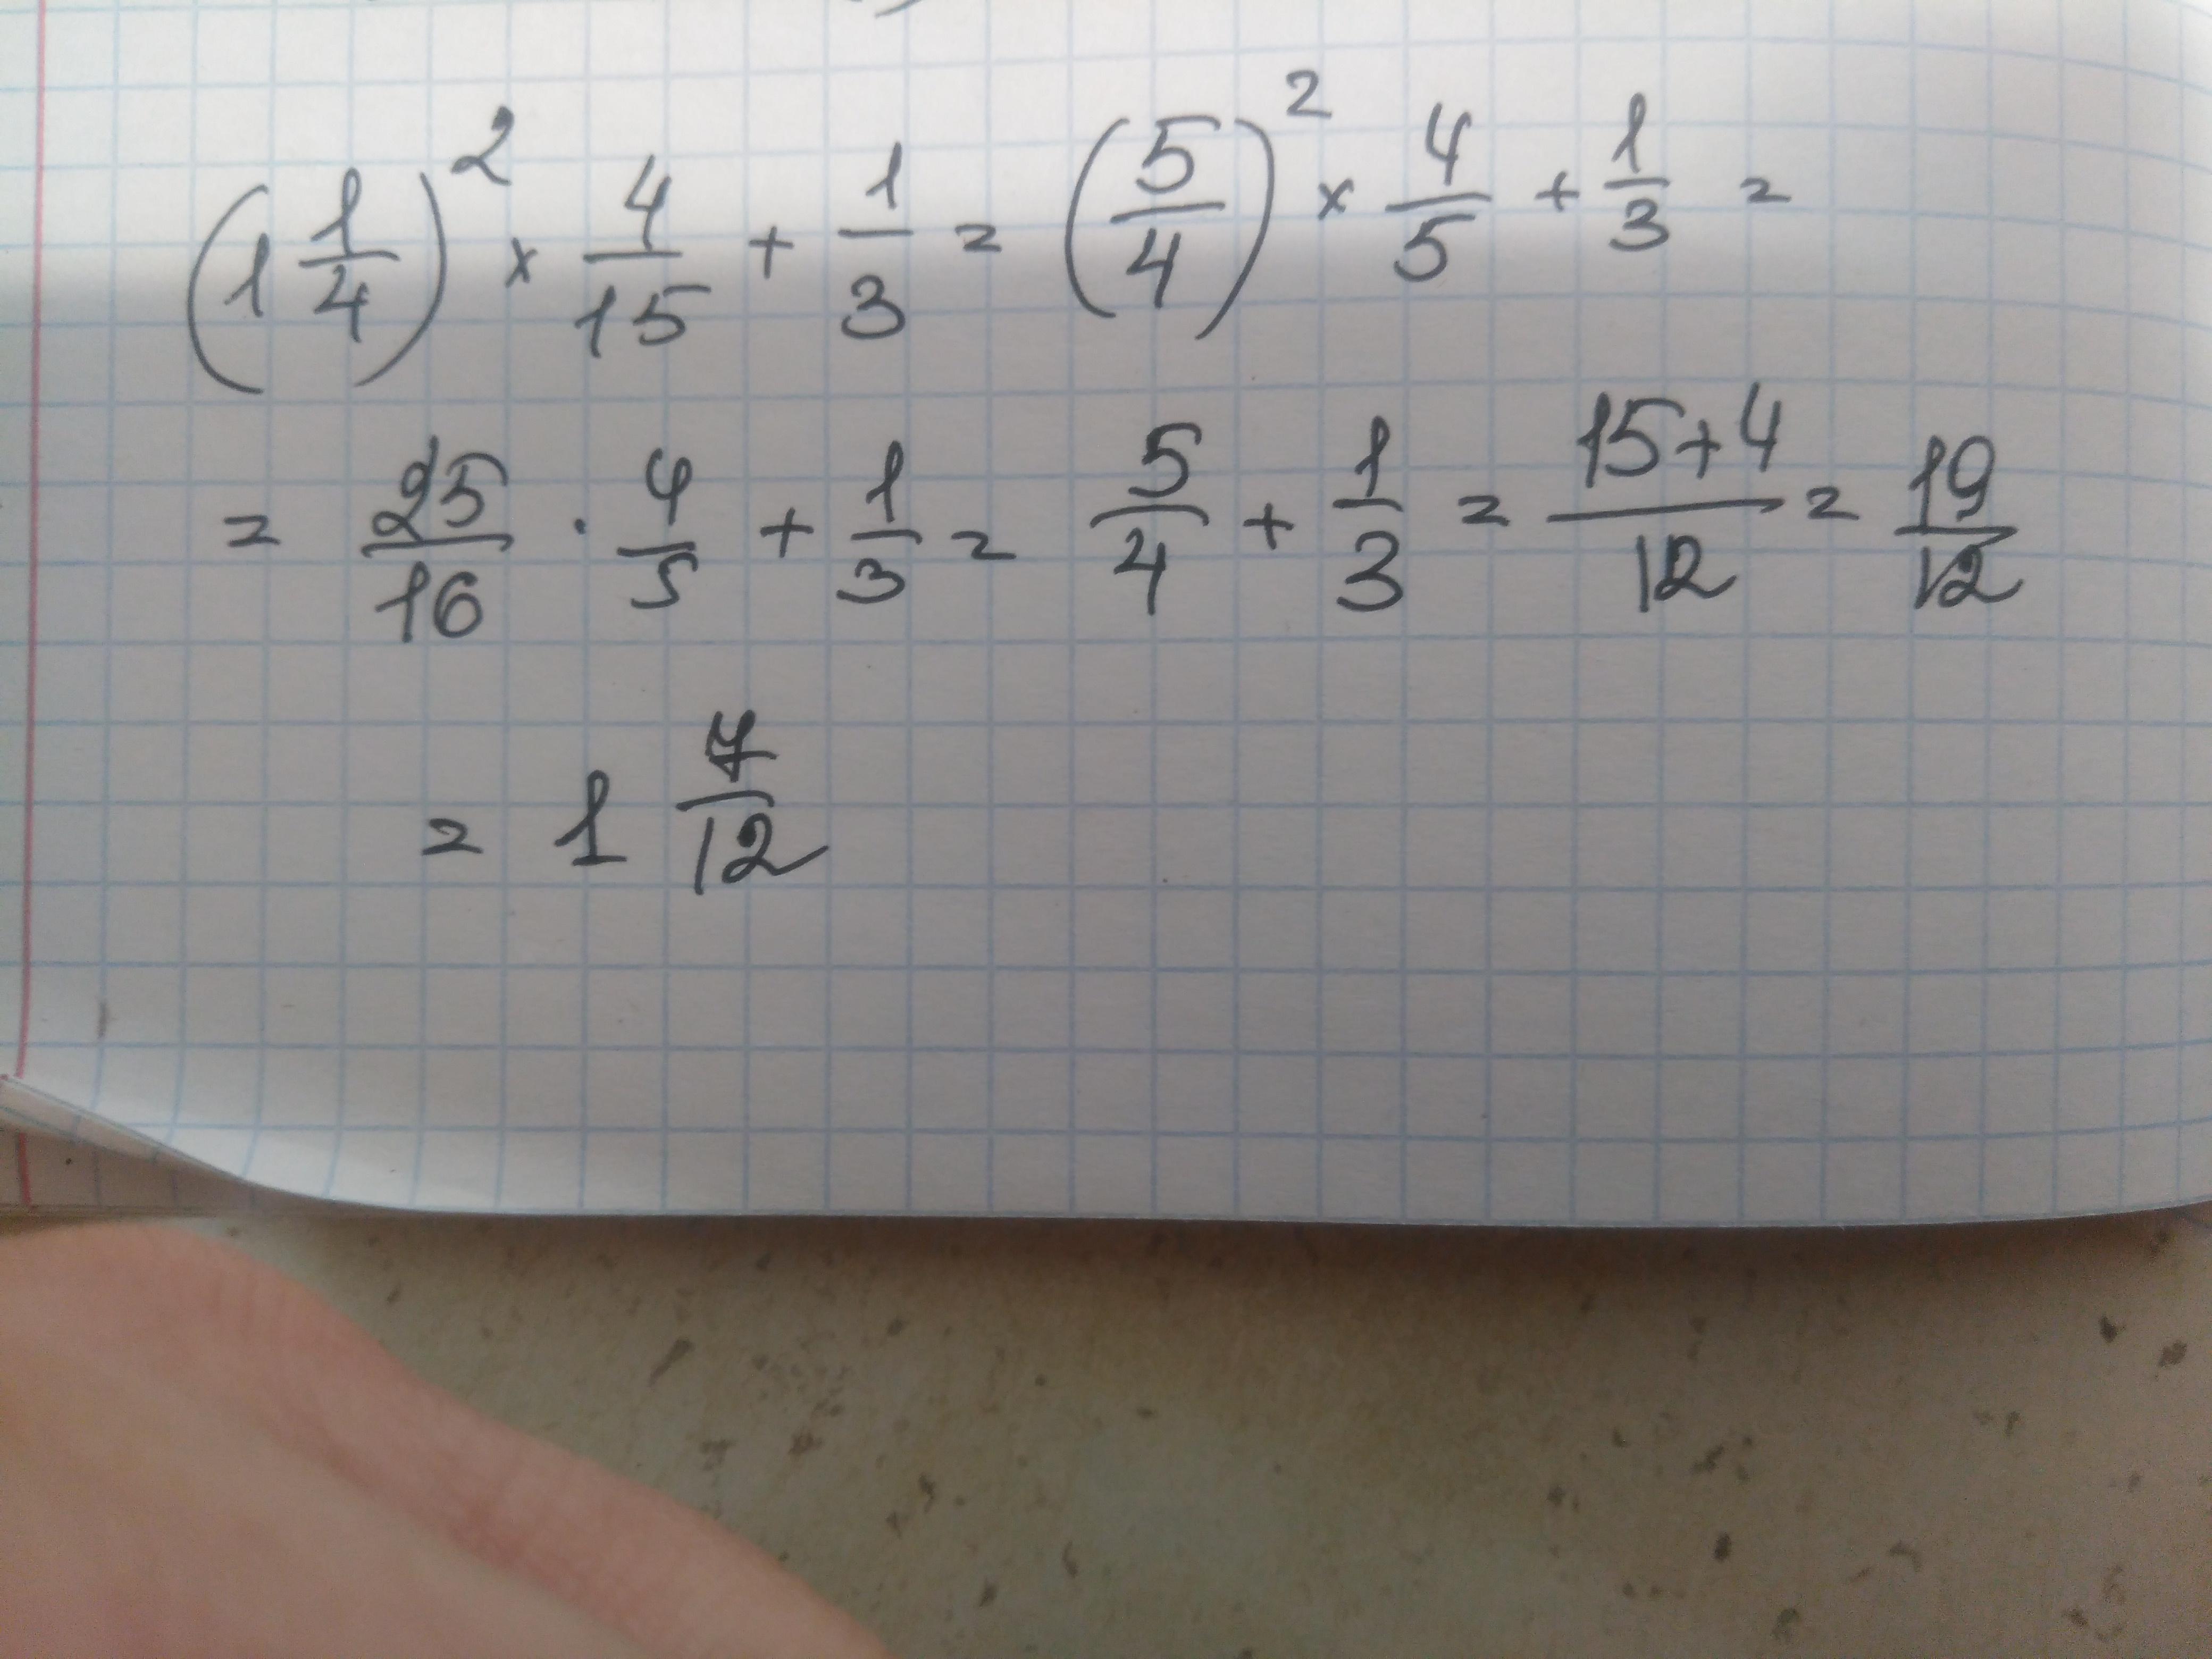 (1 1/4)² × 4/15 + 1/3 = (5/4)² × 4/5 + 1/3 =
= 25/16 · 4/5 + 1/3 = 5/4 + 1/3 = (15+4)/12 = 19/12
= 1 7/12